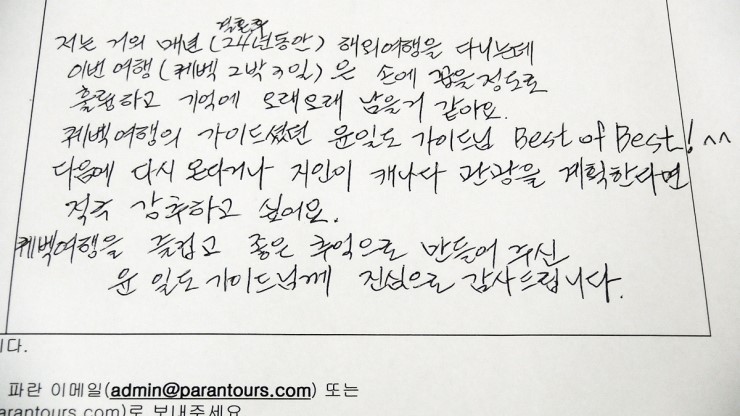 결혼후
저는 거의 매년 (24년동안) 해외여행을 다니는데
이번 여행 (퀘벡 2박 3일)은 손에 꼽을 정도로
훌륭하고 기억에 오래오래 남을거 같아요.
퀘벡여행의 가이드셨던 윤일도 가이드님 Best of Best! ^^
다음에 다시 온다거나 지인이 캐나다 관광을 계획한다면
적극 강추하고 싶어요.
퀘벡여행을 즐겁고 좋은 추억으로 만들어 주신
윤 일도 가이드님께 진심으로 감사드립니다.
니다.
파란 이메일(admin@parantours.com) 또는
arantours.com)로 보내주세요